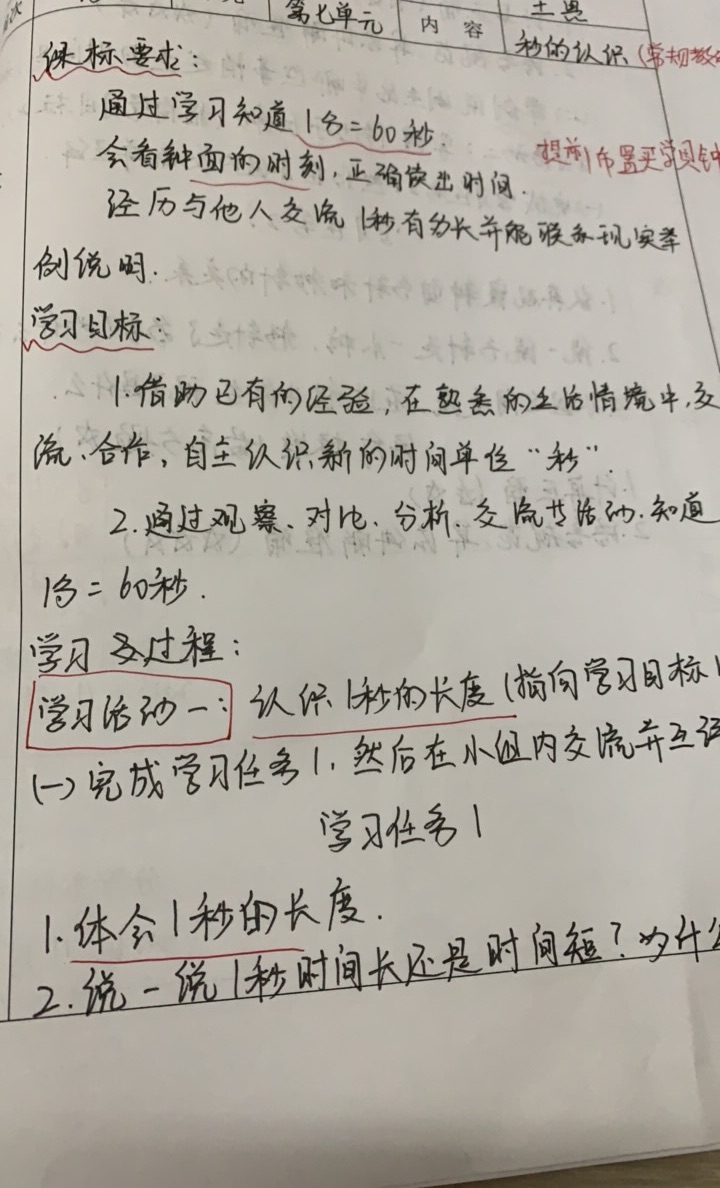 第七单元 内容
秒的认识(常规教
课标要求：
通过学习知道1分=60秒.
提前布置买学具钟
会看钟面的时刻，正确读出时间.
经历与他人交流1秒有多长并能联系现实举
例说明.
学习目标：
1.借助已有的经验，在熟悉的生活情境中，交
流、合作，自主认识新的时间单位“秒”.
2.通过观察、对比、分析、交流等活动.知道
1分=60秒.
学习过程：
学习活动一：认识1秒的长度(指向学习目标1
(一)完成学习任务1，然后在小组内交流并互
学习任务1
1.体会1秒的长度.
2.说一说1秒时间长还是时间短？为什